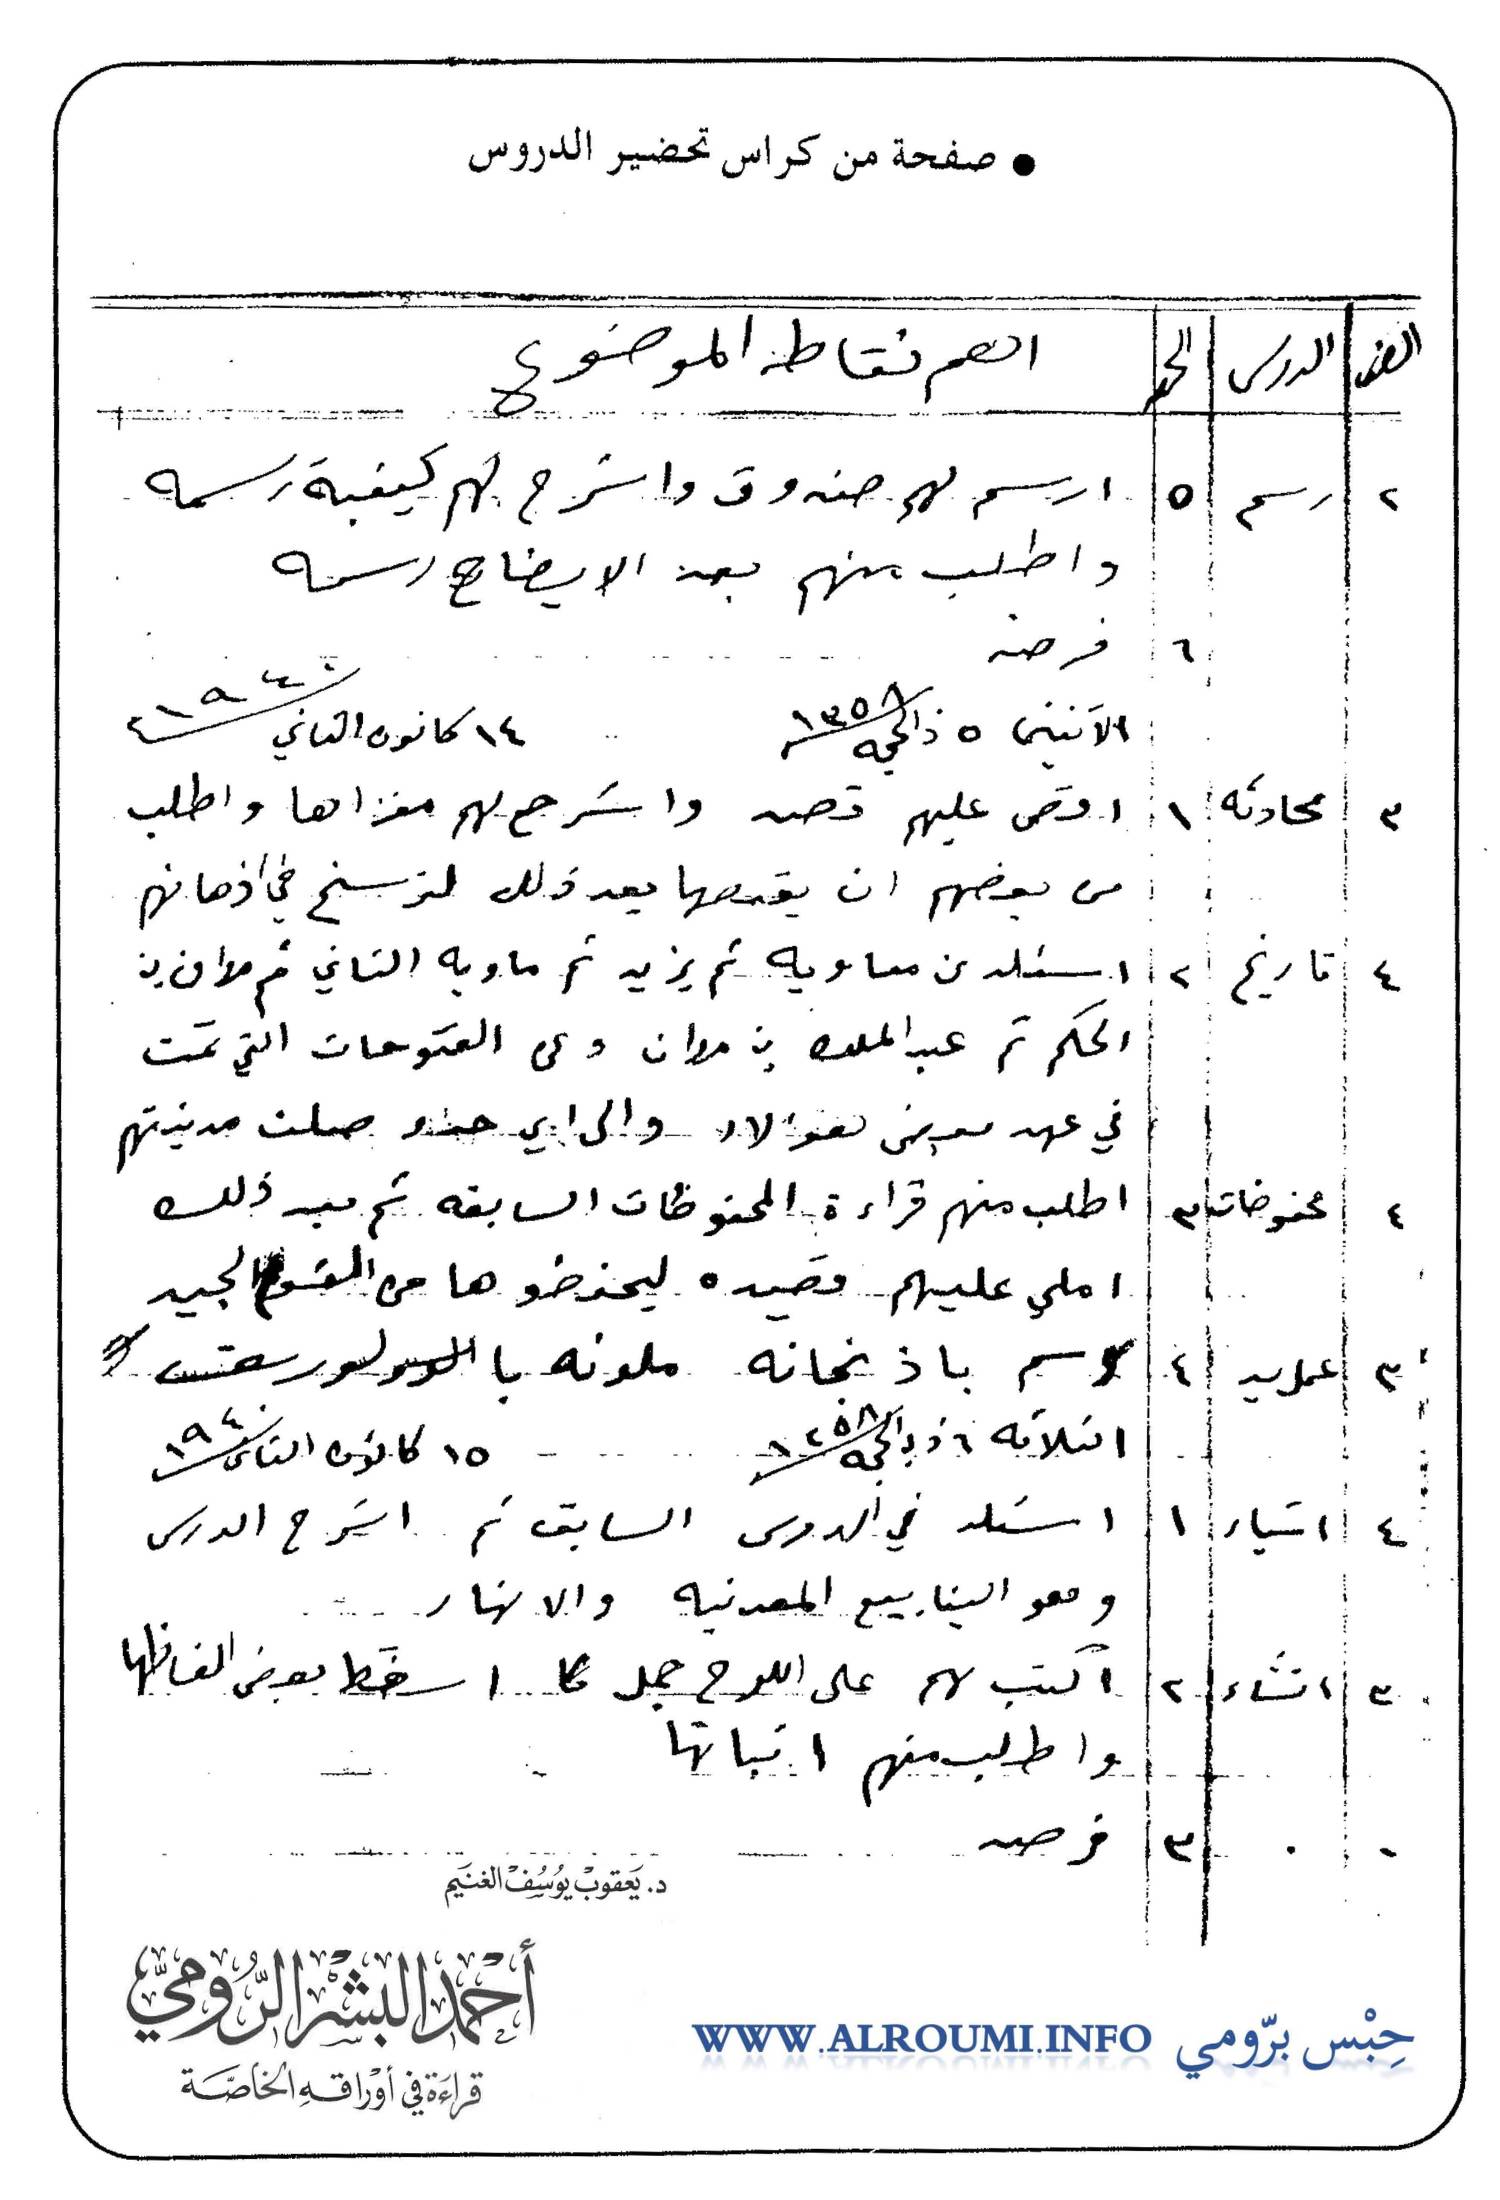 • صفحة من كراس تحضير الدروس
الصف الدرس الحصه اهم نقاط الموضوع
٢ رسم ٥ ارسم لهم صندوق واشرح لهم كيفية رسمه
واطلب منهم بعد الايضاح رسمه
٦ فرصه
الاثنين ٥ ذالحجه ١٣٥٨ ١٤ كانون الثاني ١٩٤٠
٣ محادثه ١ اقص عليهم قصه واشرح لهم مغزاها واطلب
من بعضهم ان يقصها بعد ذلك لترسخ في أذهانهم
٤ تاريخ ٢ اسئلهم عن معاويه ثم يزيد ثم ماويه الثاني ثم مروان بن
الحكم ثم عبد الملك بن مروان وعن الفتوحات التي تمت
في عهد بعض هؤلاء والى اي حد وصلت مدنيتهم
٤ محفوضات ٣ اطلب منهم قراءة المحفوظات السابقه ثم بعد ذلك
املي عليهم قصيده ليحفضوها من الجيد
٣ عمليه ٤ رسم باذنجانه ملونه با
الثلاثه ٦ ذي الحجه ١٣٥٨ ١٥ كانون الثاني ١٩٤٠
٤ اشياء ١ اسئلهم في الدرس السابق ثم اشرح الدرس
وهو الينابيع المعدنيه والانهار
٣ انشاء ٢ اكتب لهم على اللوح جمل كا اسقط بعض الفاظها
واطلب منهم اثباتها
٠ ٠ ٣ فرصه
د. يَعقوبْ يوُسُفْ الغنيَم
أَحْمَد البشْر الرّومي
قراءَة في أوْراقهِ الخاصَّة
حِبْس برّومي WWW.ALROUMI.INFO